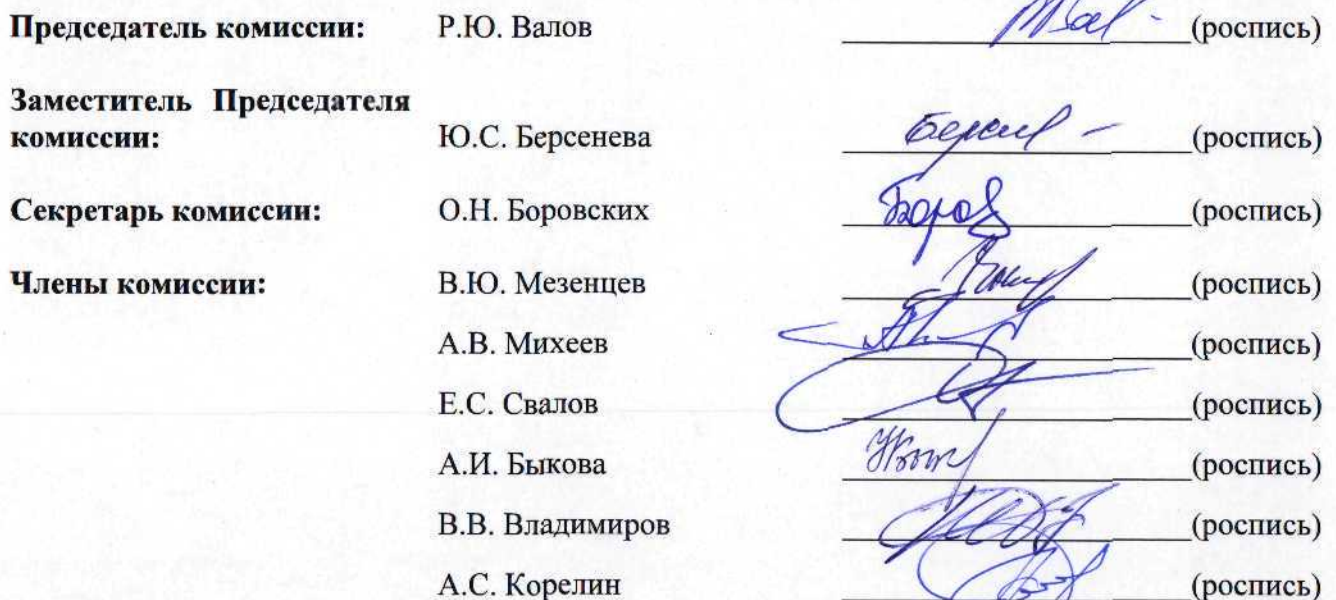 Председатель комиссии: Р.Ю. Валов (роспись)
Заместитель Председателя
комиссии: Ю.С. Берсенева (роспись)
Секретарь комиссии: О.Н. Боровских (роспись)
Члены комиссии: В.Ю. Мезенцев (роспись)
А.В. Михеев (роспись)
Е.С. Свалов (роспись)
А.И. Быкова (роспись)
В.В. Владимиров (роспись)
А.С. Корелин (роспись)